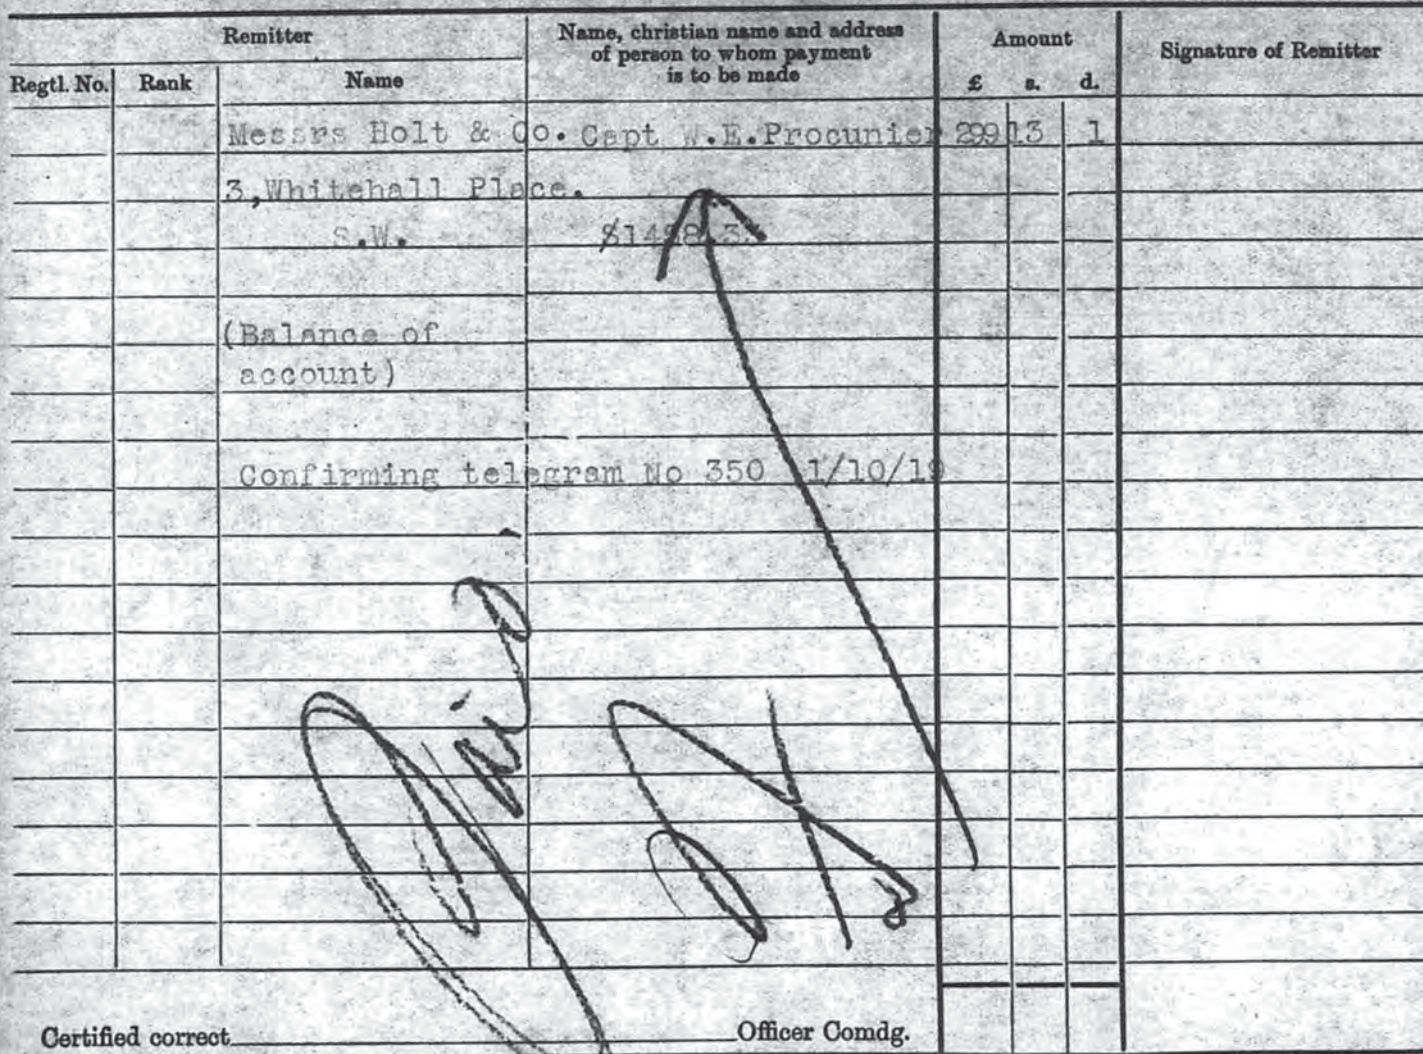 Remitter
Name, christian name and address
of person to whom payment
is to be made
Amount
Signature of Remitter
Regtl. No. Rank Name £ s. d.
Messrs Holt & Co. Capt W.E.Procunier 299 13 1
3,Whitehall Place.
S.W.
(Balance of
account)
Confirming telegram No 350 1/10/19
Paid
Certified correct Officer Comdg.